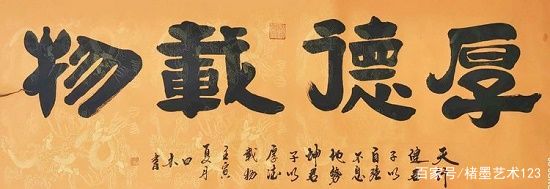 厚德載物
天行
健君
子以
自强
不息
地勢
坤君
子以
厚德
載物
壬寅
夏月
書
百家号/楮墨艺术123